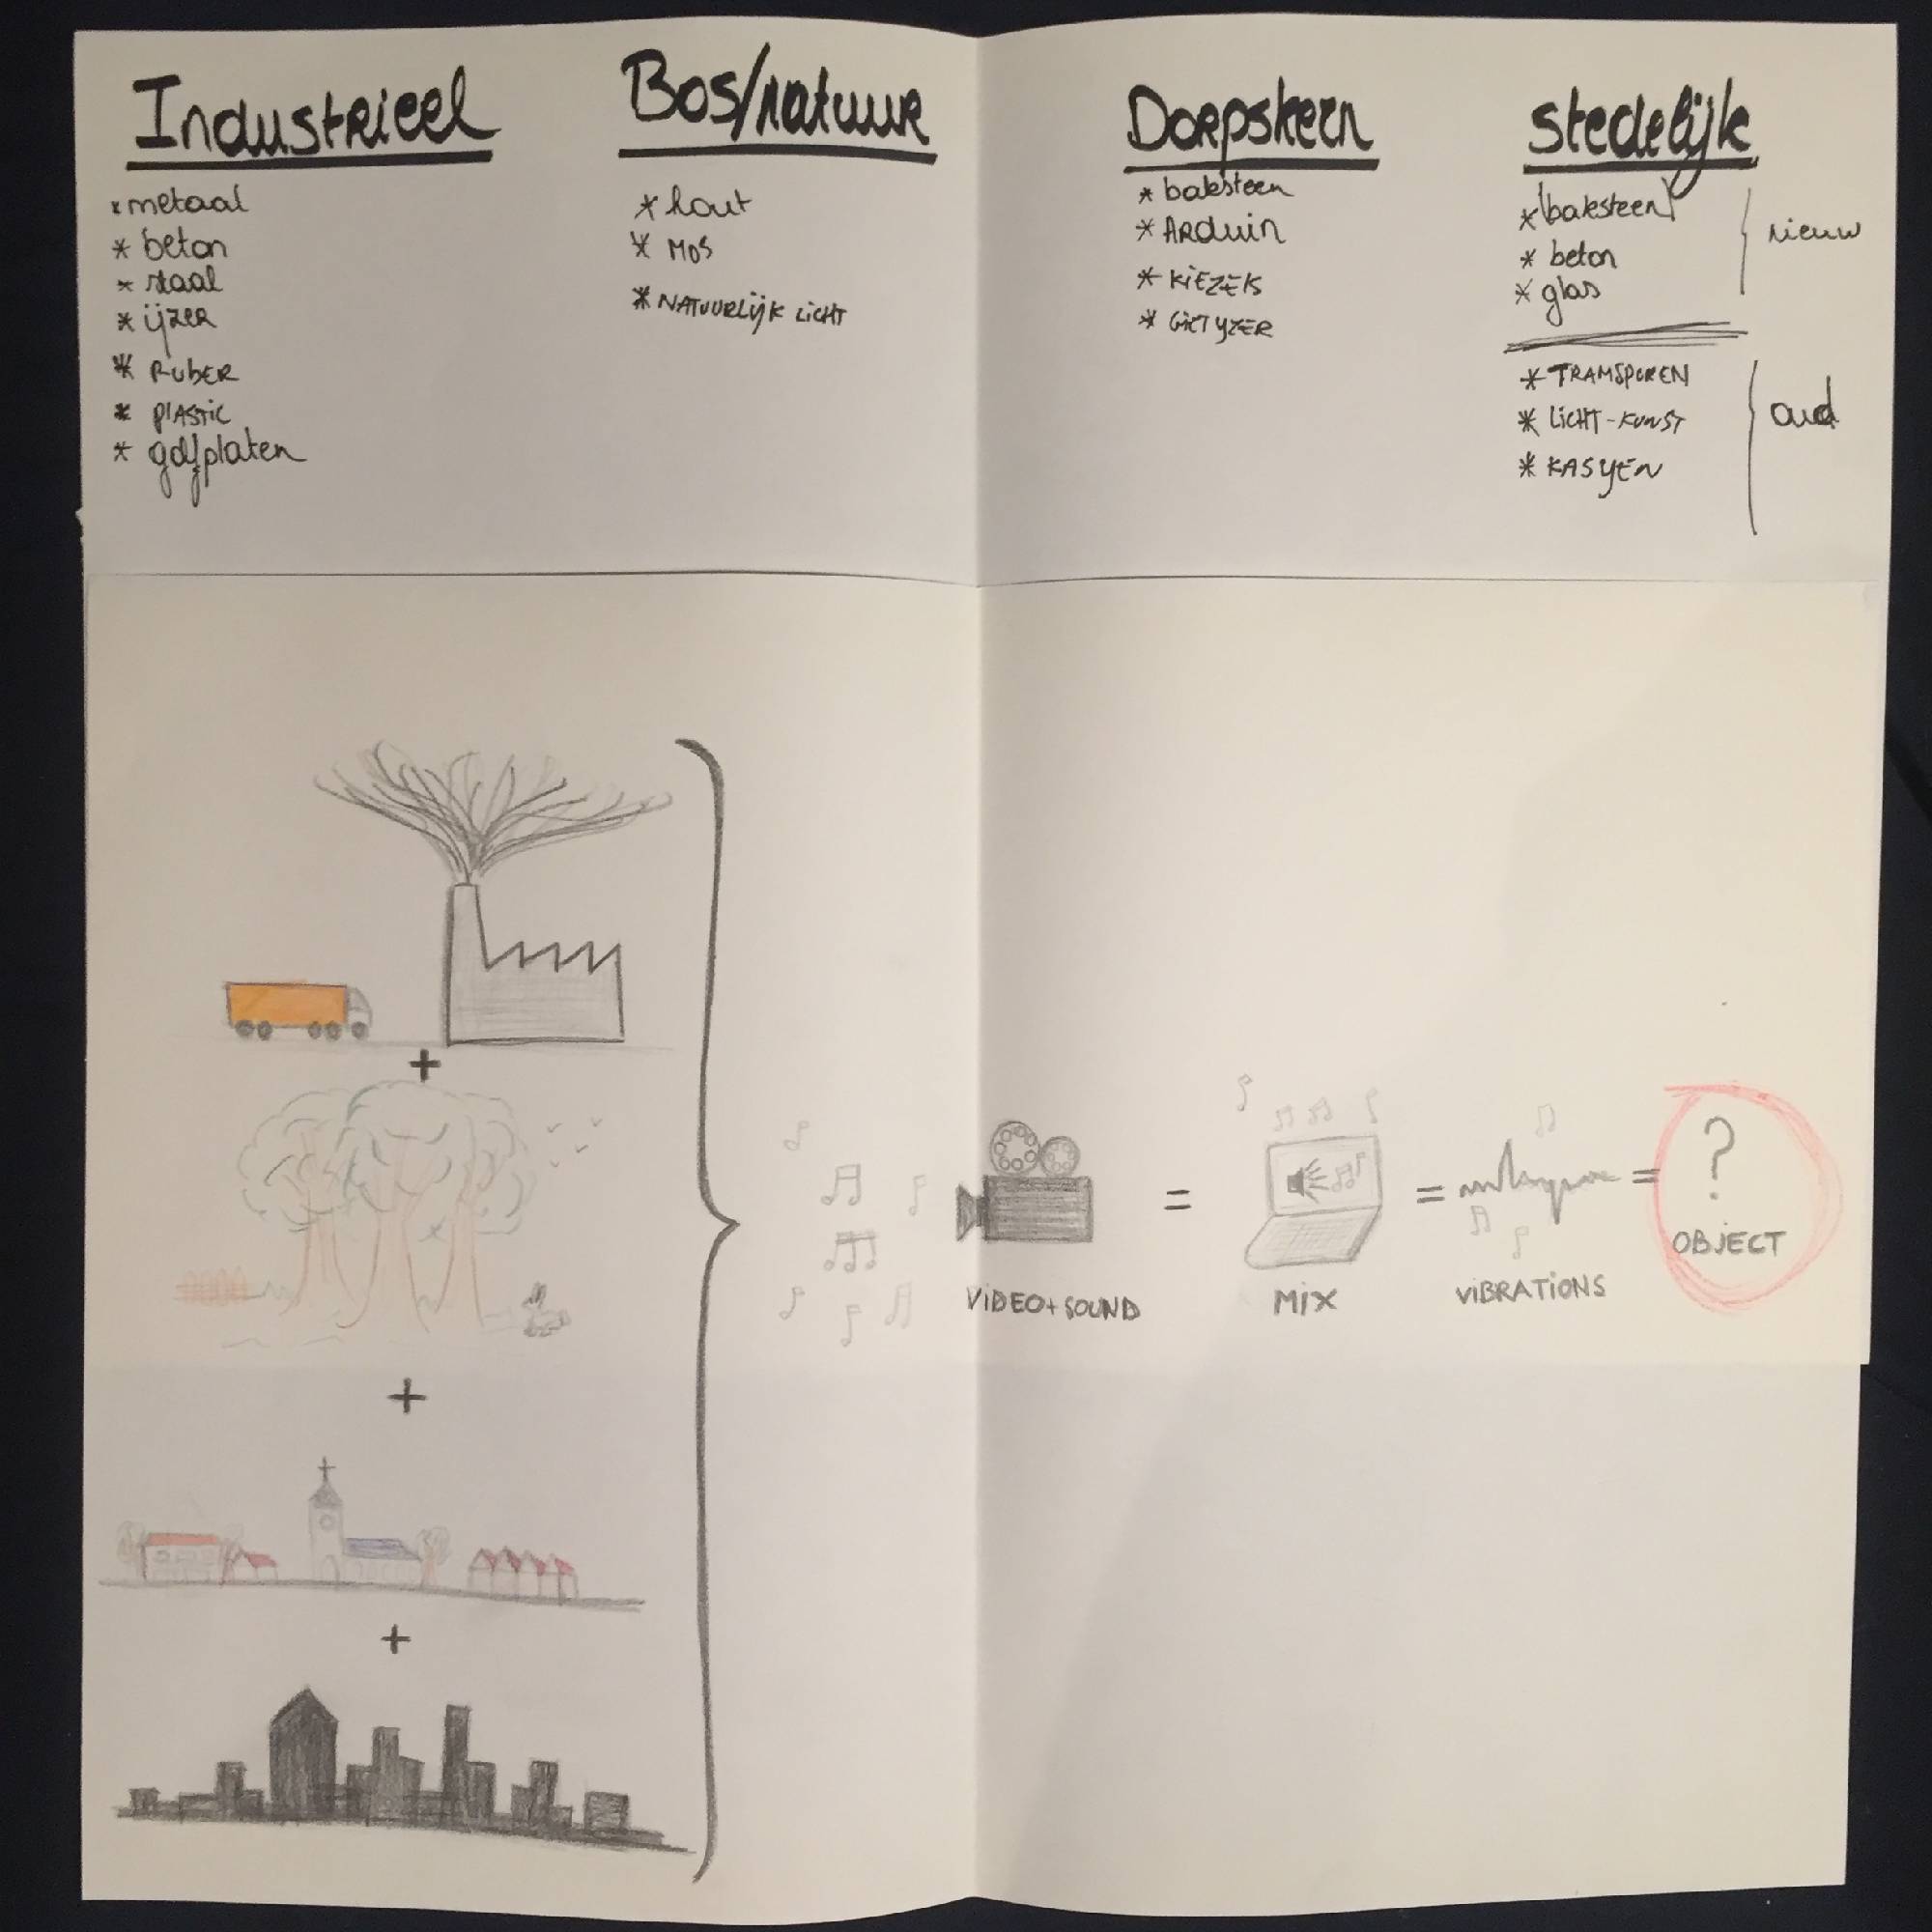 Industrieel
* metaal
* beton
* staal
* ijzer
* RubER
* plAStic
* golfplaten
Bos/natuur
* hout
* MOS
* NATUURLijK LiCHT
Dorpskern
* baksteen
* ARduin
* KiEZELS
* GiETYZER
stedelijk
* (baksteen)
* beton
* glas
nieuw
* TRAMSPOREN
* LiCHT-KUNST
* KASYEN
oud
+
+
+
ViDEO+SOUND
=
MiX
=
ViBRATiONS
=
?
OBJECT